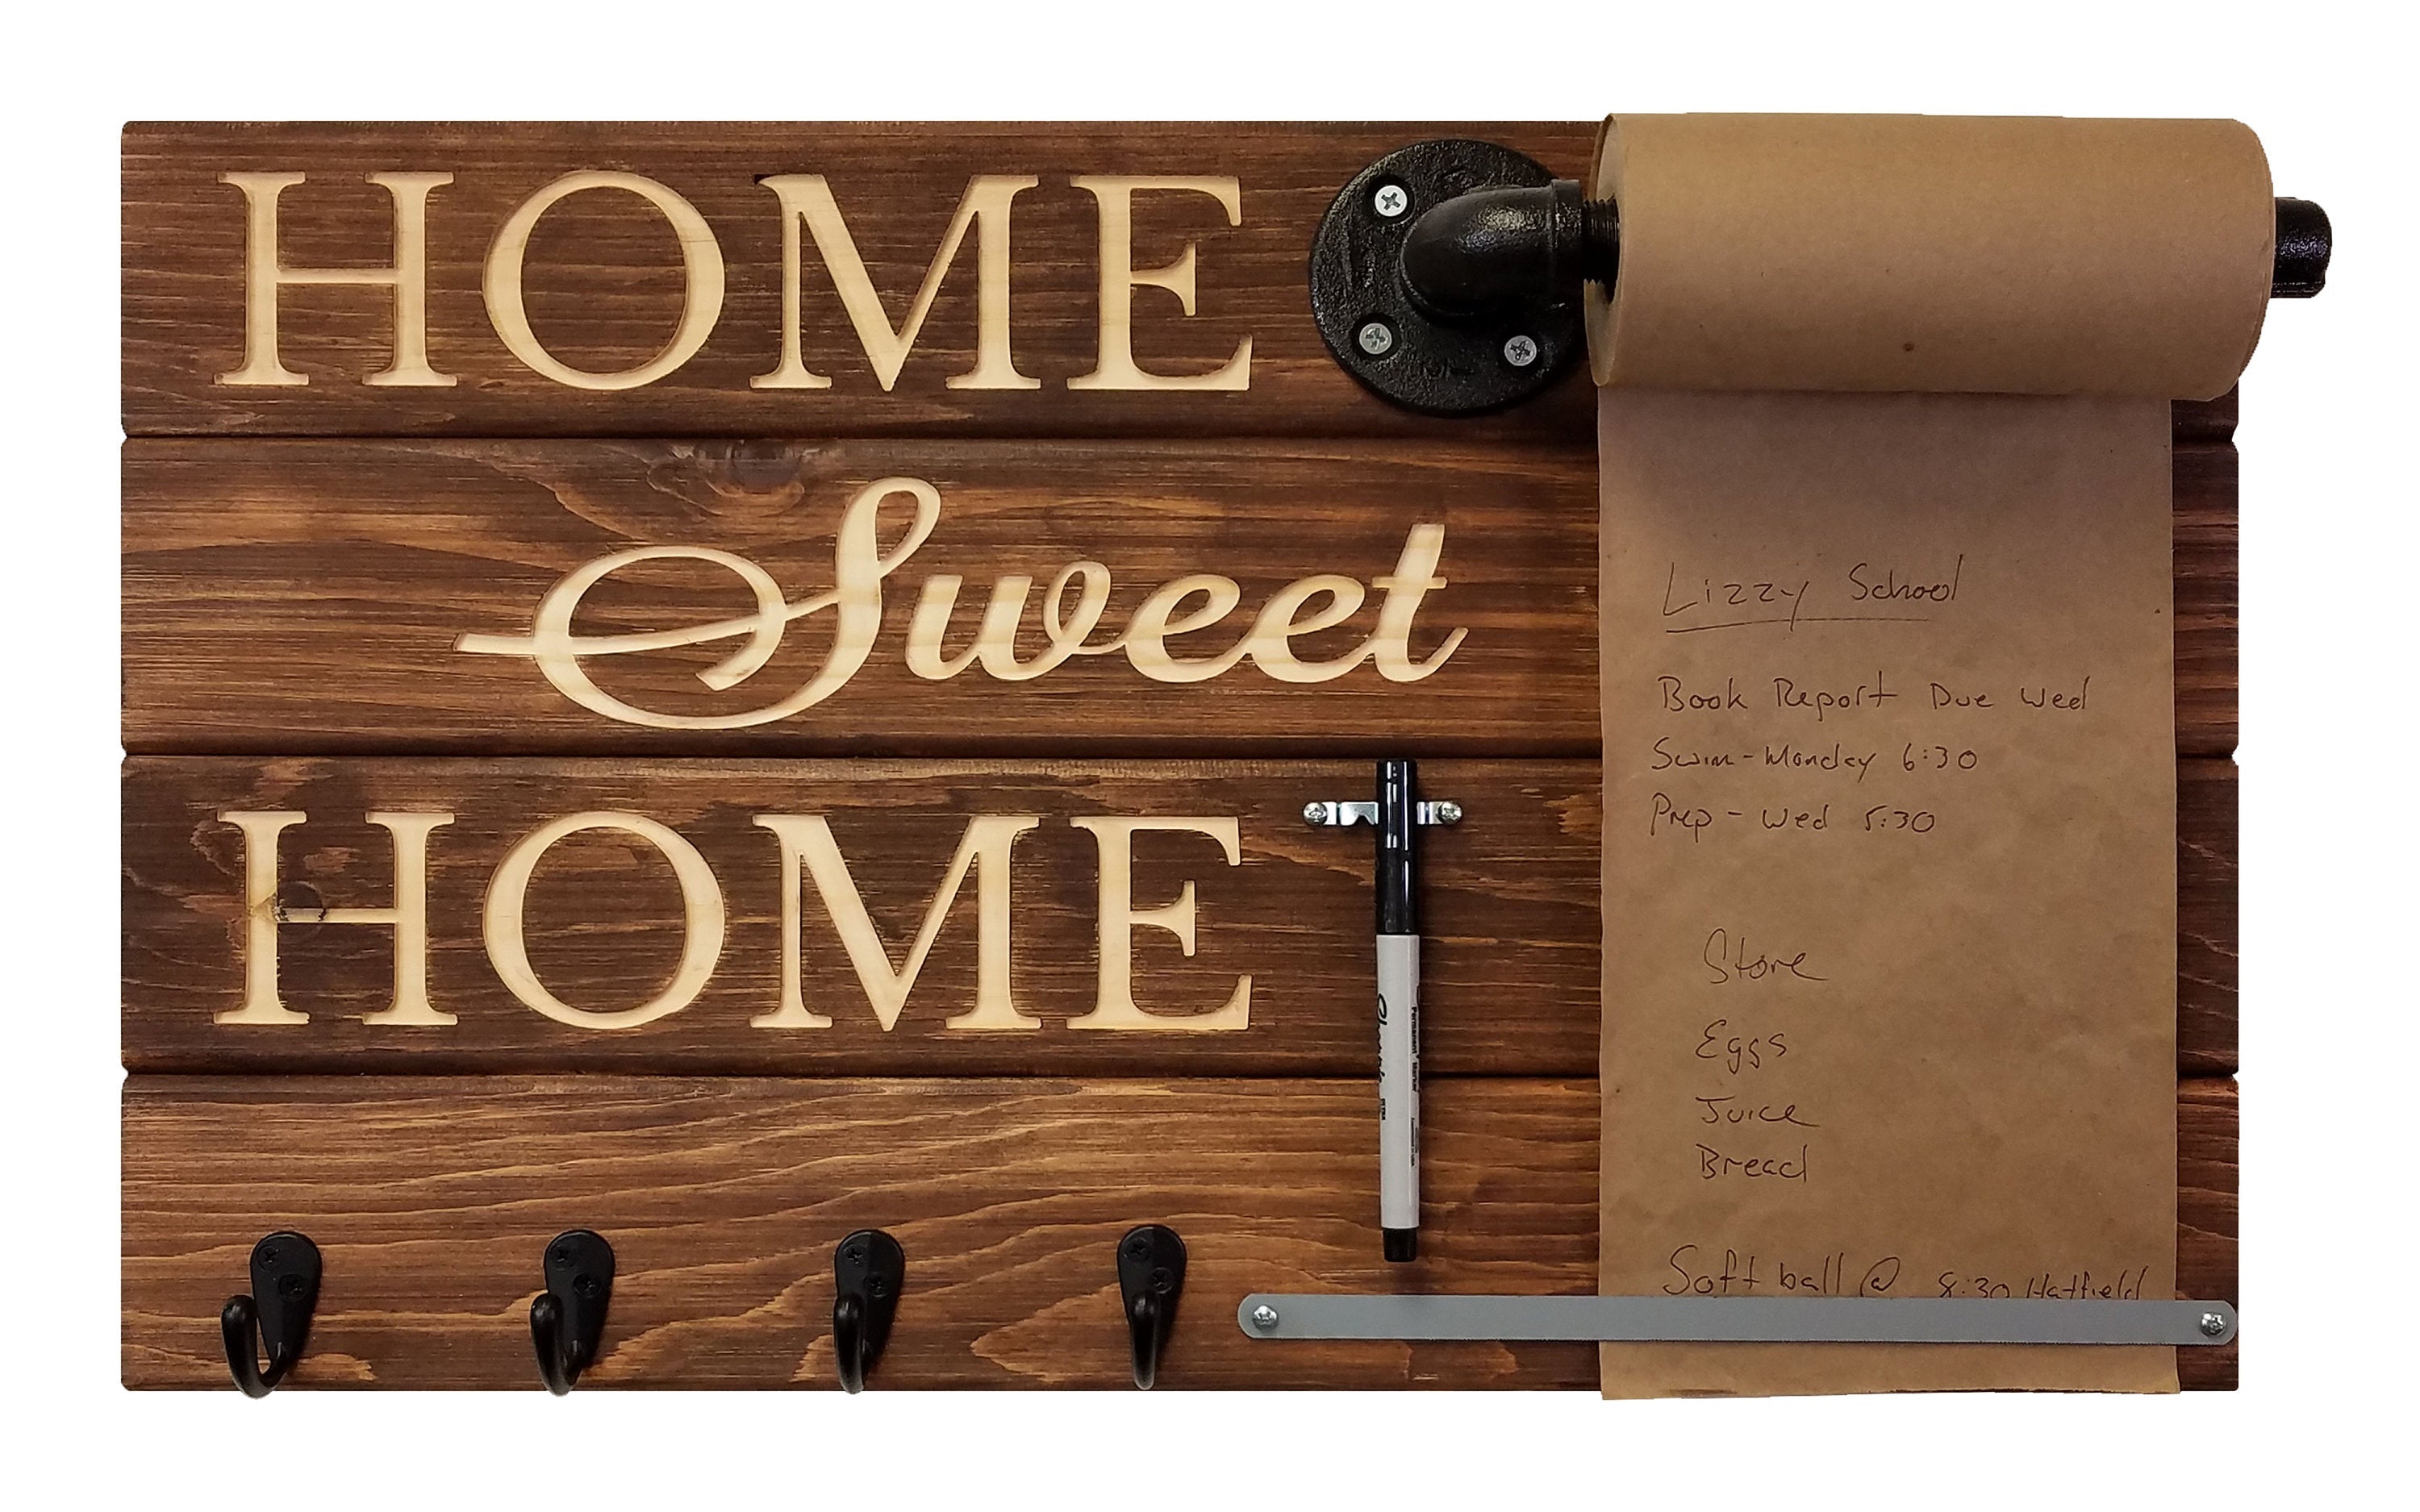 HOME
Sweet
HOME
Lizzy School
Book Report Due Wed
Swim-Monday 6:30
Prep - Wed 5:30
Store
Eggs
Juice
Bread
Softball @ 8:30 Hatfield
Sharpie
Permanent Marker